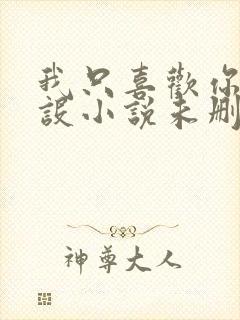 我只喜歡你
設小說未刪
神尊大人